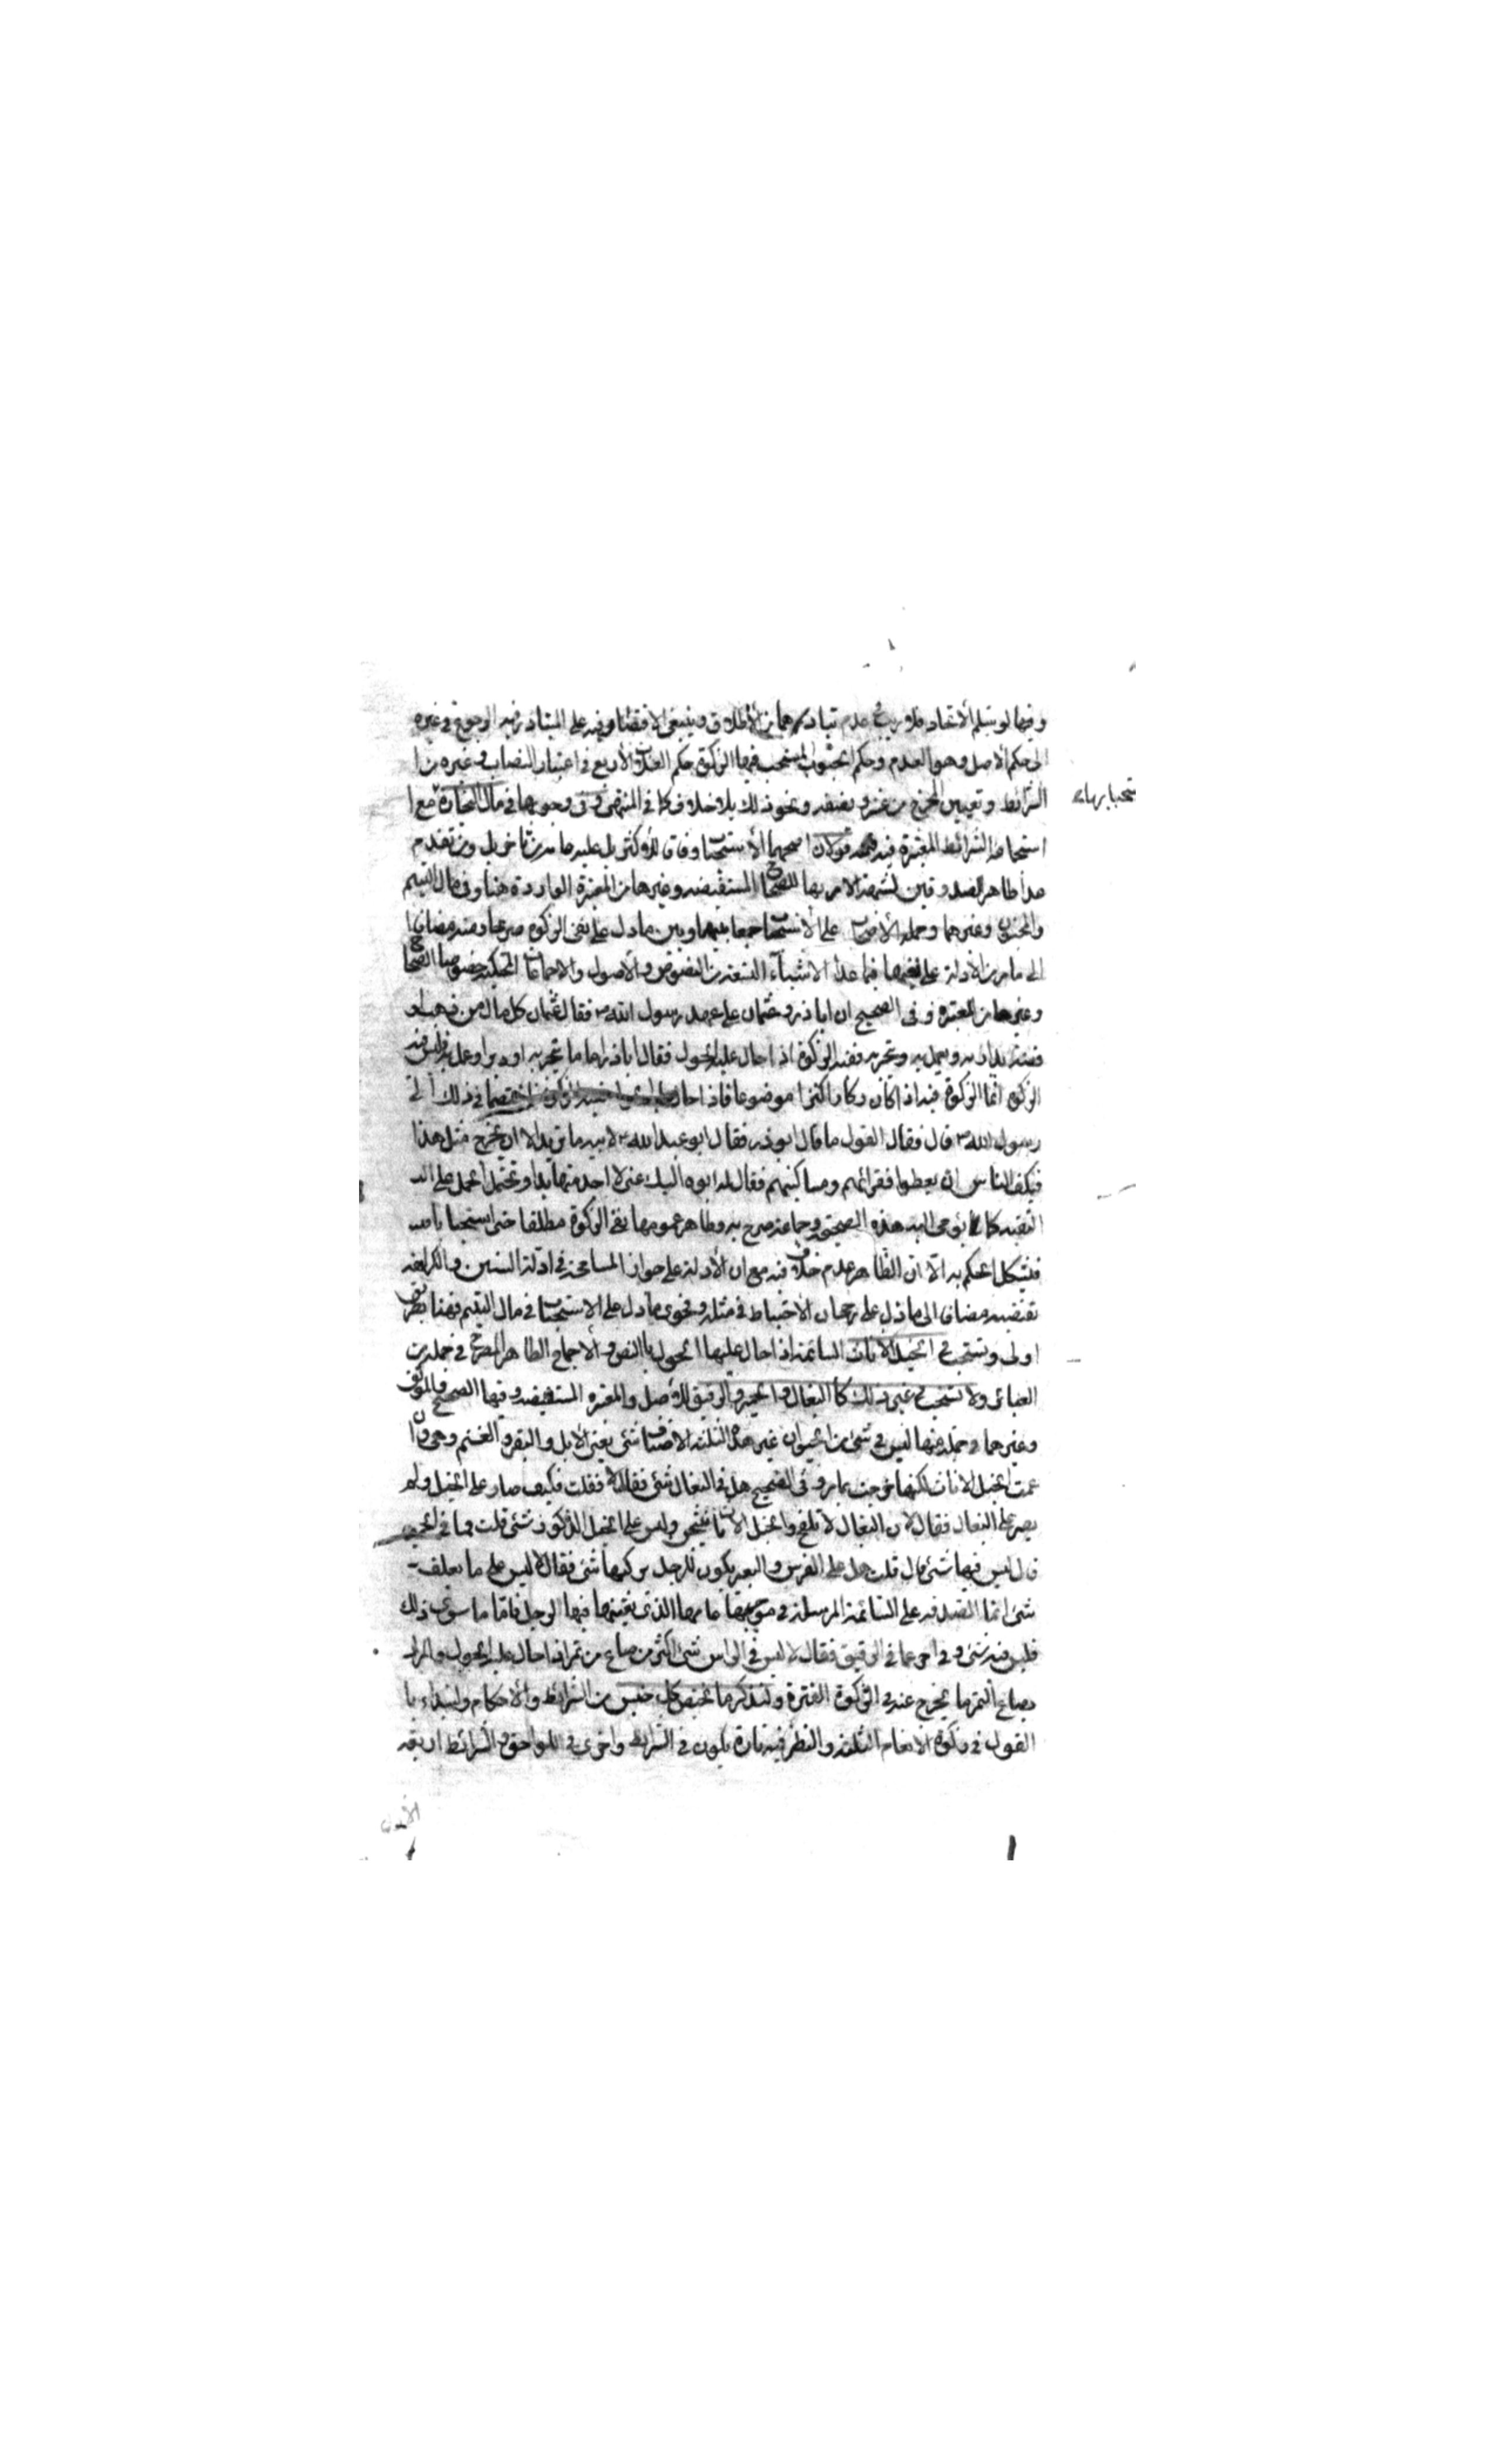 وفيها لو سلم الاتحاد فلا ريب في عدم تبادرهما من الاطلاق وينبغي الاقتصار فيه على المتبادر فيه الوجوع في غيره
الى حكم الاصل وهو العدم وحكم الحبوب المستحب فيها الزكوة حكم الغلات الاربع في اعتبار النصاب وغيره من
الشرائط وتعيين المخرج من عشر ونصفه ونحو ذلك بلا خلاف كما في المنتهى وفي وجوبها في مال التجارة مع
استجماع الشرائط المعتبرة فيه قولان اصحهما الاستحباب وفاقا للاكثر بل عليه عامة من تاخر بل ومن تقدم
عدا ظاهر الصدوقين لتضمنه الامر بها للصحاح المستفيضة وغيرها من المعتبرة الواردة هنا وفي مال اليتيم
والمجنون وغيرهما وحمله الاصحاب على الاستحباب جمعا بينها وبين ما دل على نفي الزكوة صريحا وفيه مضافا
الى ما مر من الادلة على نفيها فيما عدا الاشياء التسعة من النصوص والاصول والاجماعات المحكية خصوصا الصحاح
وغيرها من المعتبرة وفي الصحيح ان ابا ذر وعثمان على عهد رسول الله ص فقال عثمان كل مال من ذهب او
فضة يدار به ويعمل به ويتجر به ففيه الزكوة اذا حال عليه الحول فقال ابا ذر اما ما يتجر به او دير او عمل به فليس فيه
الزكوة انما الزكوة فيه اذا كان ركازا كنزا موضوعا فاذا حال عليه الحول ففيه الزكوة فاختصما في ذلك الى
رسول الله ص قال فقال القول ما قال ابو ذر فقال ابو عبد الله ع لابيه ما تريد الا ان يخرج مثل هذا
فيكف الناس ان يعطوا فقرائهم ومساكينهم فقال له ابوه اليك عني لا اجد منها بدا ويحتمل الحمل على
التقية كما يومي اليه هذه الصحيحة وجماعة صرح به وظاهر عمومها نفي الزكوة مطلقا حتى استحبابا
فيشكل الحكم به الا ان الظاهر عدم خلاف فيه مع ان الادلة على جواز المسامحة في ادلة السنن والكراهة
تقتضيه مضافا الى ما دل على رجحان الاحتياط في مثله وفحوى ما دل على الاستحباب في مال اليتيم فهنا بطريق
اولى ويستحب في الخيل الاناث السائمة اذا حال عليها الحول بالنص والاجماع الظاهر المصرح في جملة من
العبائر ولا تستحب في غير ذلك كالبغال والحمير والرقيق للاصل والمعتبرة المستفيضة وفيها الصحيح والموثق
وغيرهما وجملة منها ليس في شئ من الحيوان غير هذه الثلثة الاصناف شئ يعني الابل والبقر والغنم وهي وان
عمت الخيل الاناث لكنها خرجت بما مر وفي الصحيح هل في البغال شئ فقال لا فقلت فكيف صار على الخيل ولم
يصر على البغال فقال لان البغال لا تلقح والخيل الاناث ينتجن وليس على الخيل الذكور شئ قلت فما في الحمير
قال ليس فيها شئ قال قلت هل على الفرس والبعير يكون للرجل يركبها شئ فقال لا ليس على ما يعلف
شئ انما الصدقة على السائمة المرسلة في مرجها عامها الذي يقتنيها فيها الرجل فاما ما سوى ذلك
فليس فيه شئ وفي اخر عما في الرقيق فقال لا ليس في الراس شئ اكثر من صاع من تمر اذا حال عليه الحول والمراد
بصاع التمر ما يخرج عنه في الزكوة الفطرة ولنذكر ما يختص كل جنس من الشرائط والاحكام وابتداء
القول في زكوة الانعام الثلثة والنظر فيه تارة يكون في الشرائط واخرى في اللواحق والشرائط اربعة